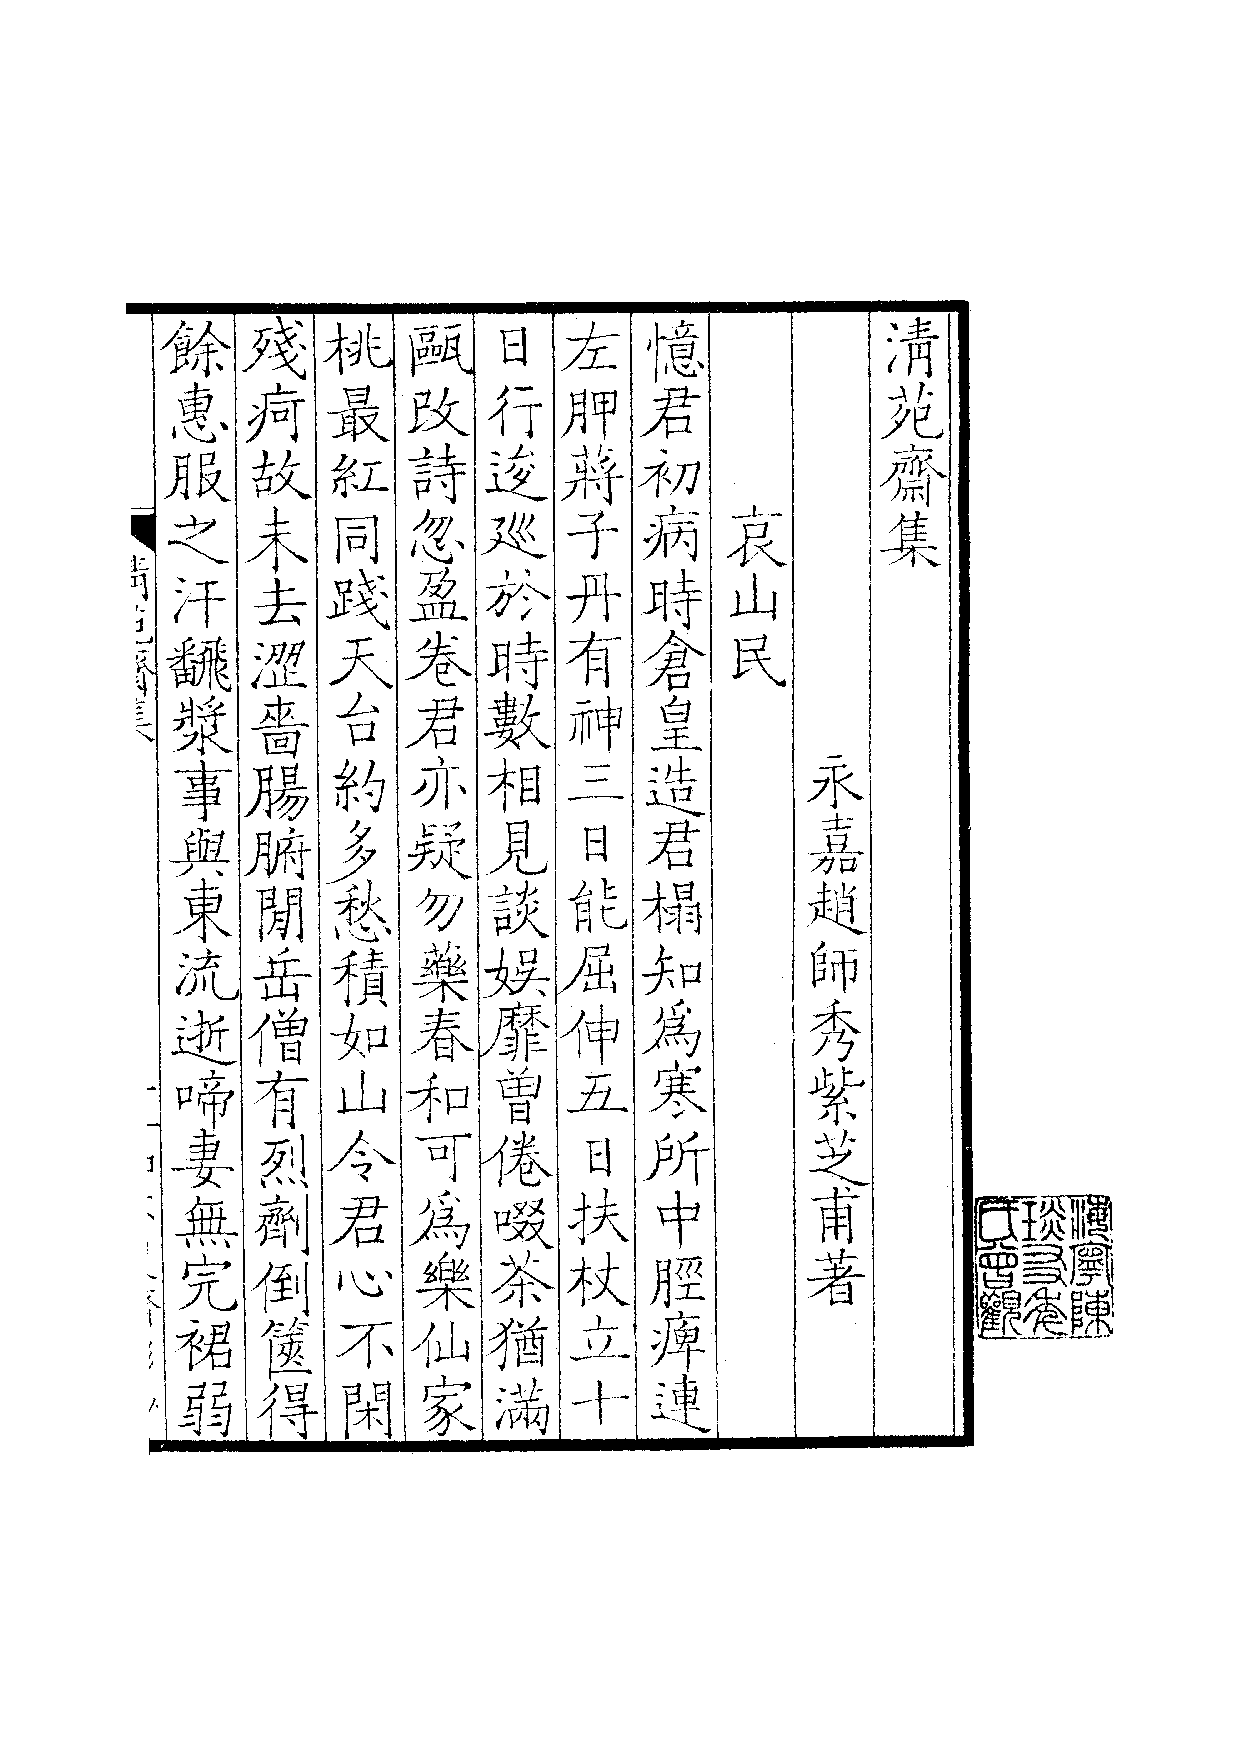 清苑齋集
永嘉趙師秀紫芝甫著
哀山民
憶君初病時倉皇造君榻知爲寒所中脛痺連
左胛蔣子丹有神三日能屈伸五日扶杖立十
日行逡廵於時數相見談娱靡曽倦啜茶猶滿
甌改詩忽盈卷君亦疑勿藥春和可爲樂仙家
桃最紅同踐天台約多愁積如山令君心不閑
殘疴故未去澀嗇腸腑閒岳僧有烈劑倒篋得
餘惠服之汗飜漿事與東流逝啼妻無完裙弱
清苑齋集
海寧陳
琰友年
氏曾觀